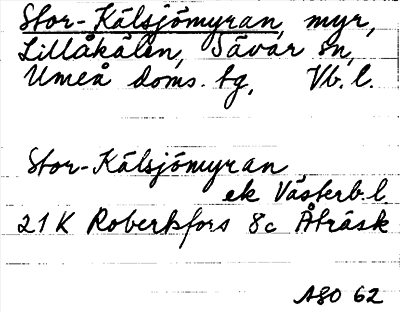 Stor-Kälsjömyran, myr,
Lillåkälen, Sävar sn,
Umeå doms. tg, Vb. l.
Stor-Kälsjömyran
ek Västerb. l
21 K Robertsfors 8c Åträsk
ASO 62